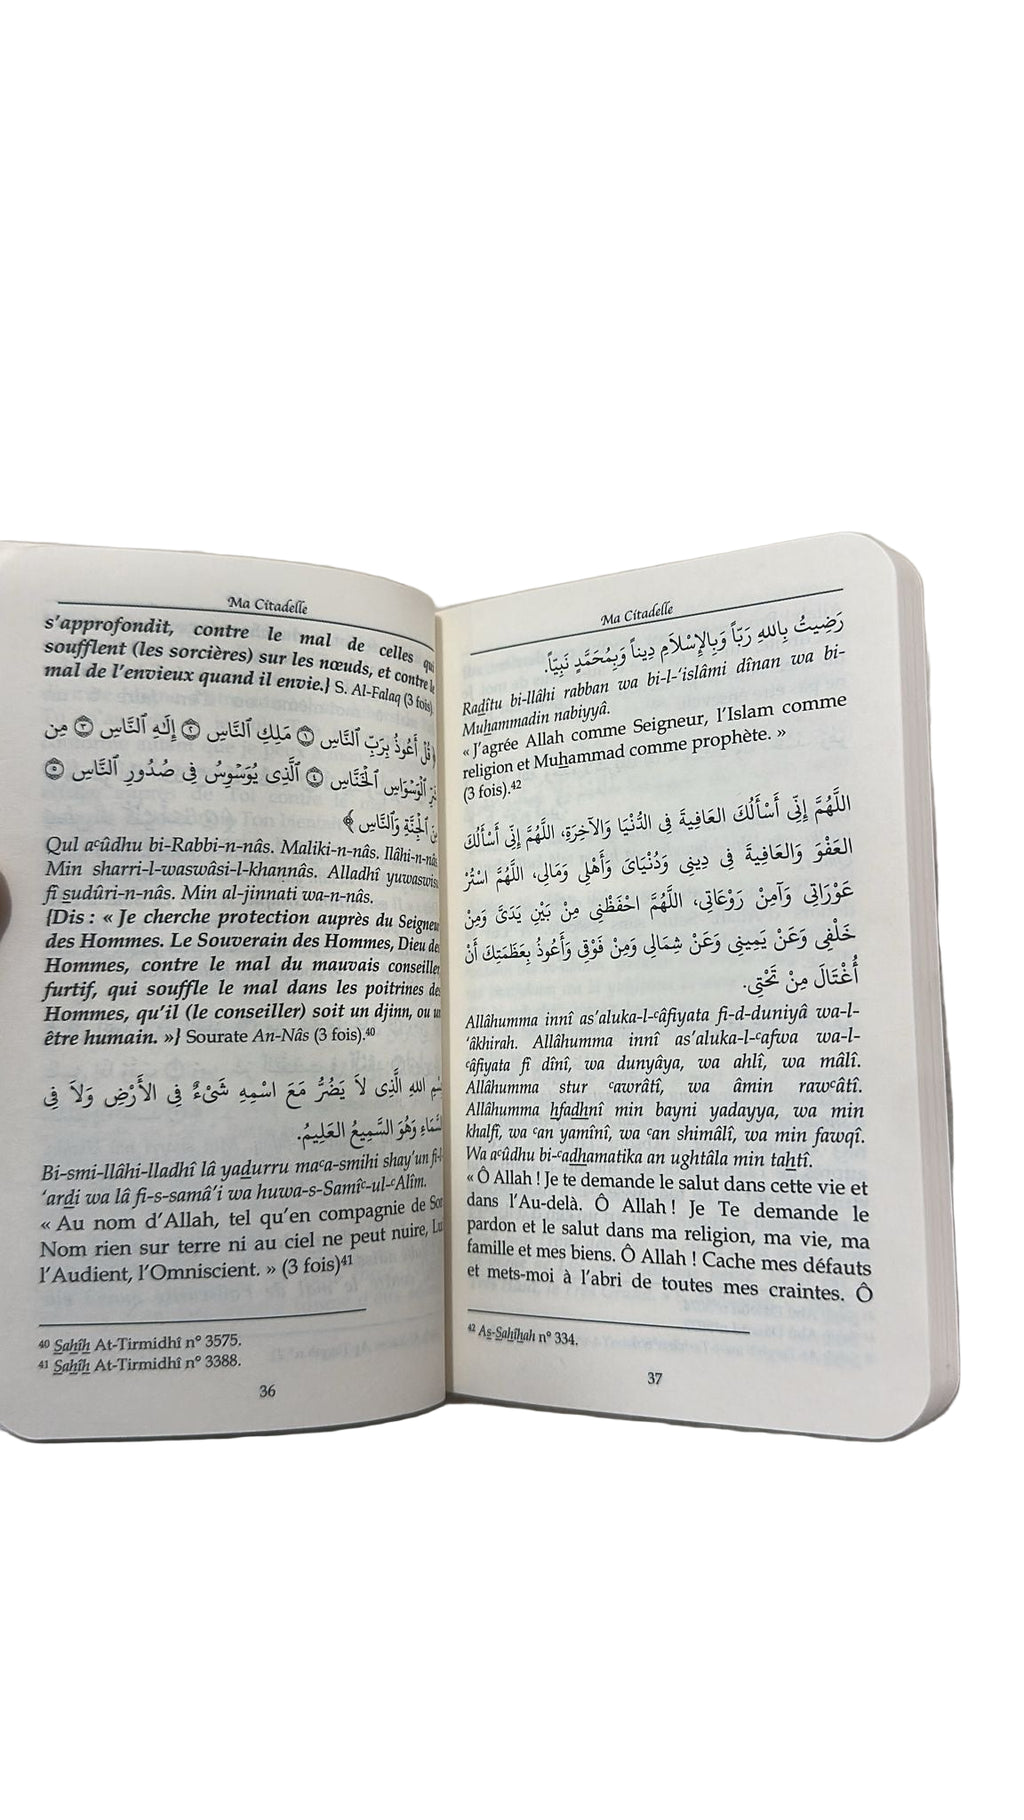 Ma Citadelle
s'approfondit, contre le mal de celles qui
soufflent (les sorcières) sur les nœuds, et contre le
mal de l'envieux quand il envie.} S. Al-Falaq (3 fois).
قُلْ أَعُوذُ بِرَبِّ ٱلنَّاسِ ۝١ مَلِكِ ٱلنَّاسِ ۝٢ إِلَٰهِ ٱلنَّاسِ ۝٣ مِن
ٱلْوَسْوَاسِ ٱلْخَنَّاسِ ۝٤ ٱلَّذِى يُوَسْوِسُ فِى صُدُورِ ٱلنَّاسِ ۝٥
ٱلْجِنَّةِ وَٱلنَّاسِ ﴾
Qul aᶜûdhu bi-Rabbi-n-nâs. Maliki-n-nâs. Ilâhi-n-nâs.
Min sharri-l-waswâsi-l-khannâs. Alladhî yuwaswisu
fî sudûri-n-nâs. Min al-jinnati wa-n-nâs.
{Dis : « Je cherche protection auprès du Seigneur
des Hommes. Le Souverain des Hommes, Dieu des
Hommes, contre le mal du mauvais conseiller
furtif, qui souffle le mal dans les poitrines des
Hommes, qu'il (le conseiller) soit un djinn, ou un
être humain. »} Sourate An-Nâs (3 fois).⁴⁰
بِسْمِ اللهِ الَّذِى لاَ يَضُرُّ مَعَ اسْمِهِ شَىْءٌ فِى الأَرْضِ وَلاَ فِى
السَّمَاءِ وَهُوَ السَّمِيعُ العَلِيمُ.
Bi-smi-llâhi-lladhî lâ yadurru maᶜa-smihi shay'un fi-l-
'ardi wa lâ fi-s-samâ'i wa huwa-s-Samîᶜ-ul-ᶜAlîm.
« Au nom d'Allah, tel qu'en compagnie de Son
Nom rien sur terre ni au ciel ne peut nuire, Lui
l'Audient, l'Omniscient. » (3 fois)⁴¹
⁴⁰ Sahîh At-Tirmidhî n° 3575.
⁴¹ Sahîh At-Tirmidhî n° 3388.
36
Ma Citadelle
رَضِيتُ بِاللهِ رَبّاً وَبِالإِسْلاَمِ دِيناً وَبِمُحَمَّدٍ نَبِيّاً.
Radîtu bi-llâhi rabban wa bi-l-'islâmi dînan wa bi-
Muhammadin nabiyyâ.
« J'agrée Allah comme Seigneur, l'Islam comme
religion et Muhammad comme prophète. »
(3 fois).⁴²
اللَّهُمَّ إِنِّى أَسْأَلُكَ العَافِيةَ فِى الدُّنْيَا وَالآخِرَةِ، اللَّهُمَّ إِنِّى أَسْأَلُكَ
العَفْوَ وَالعَافِيةَ فِى دِينِى وَدُنْيَاىَ وَأَهْلِى وَمَالِى، اللَّهُمَّ اسْتُرْ
عَوْرَاتِى وَآمِنْ رَوْعَاتِى، اللَّهُمَّ احْفَظْنِى مِنْ بَيْنِ يَدَىَّ وَمِنْ
خَلْفِى وَعَنْ يَمِينِى وَعَنْ شِمَالِى وَمِنْ فَوْقِى وَأَعُوذُ بِعَظَمَتِكَ أَنْ
أُغْتَالَ مِنْ تَحْتِى.
Allâhumma innî as'aluka-l-ᶜâfiyata fi-d-duniyâ wa-l-
'âkhirah. Allâhumma innî as'aluka-l-ᶜafwa wa-l-
ᶜâfiyata fî dînî, wa dunyâya, wa ahlî, wa mâlî.
Allâhumma stur ᶜawrâtî, wa âmin rawᶜâtî.
Allâhumma hfadhnî min bayni yadayya, wa min
khalfî, wa ᶜan yamînî, wa ᶜan shimâlî, wa min fawqî.
Wa aᶜûdhu bi-ᶜadhamatika an ughtâla min tahtî.
« Ô Allah ! Je te demande le salut dans cette vie et
dans l'Au-delà. Ô Allah ! Je Te demande le
pardon et le salut dans ma religion, ma vie, ma
famille et mes biens. Ô Allah ! Cache mes défauts
et mets-moi à l'abri de toutes mes craintes. Ô
⁴² As-Sahîhah n° 334.
37